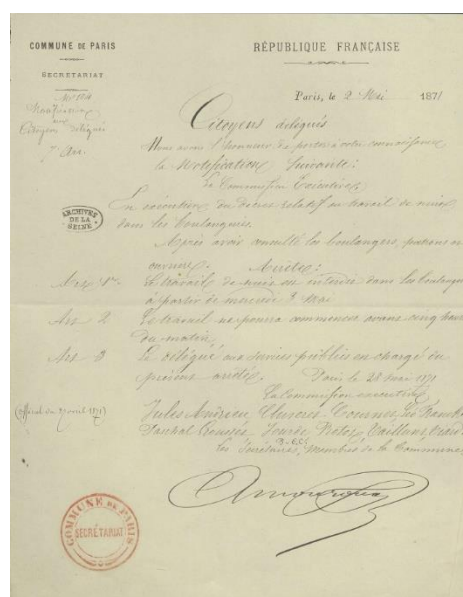 COMMUNE DE PARIS
SECRÉTARIAT
RÉPUBLIQUE FRANÇAISE
Paris, le 2 Mai 1871
aux
Citoyen délégué
Arr.
Citoyens délégués
Nous avons l'honneur de porter à votre connaissance
la Notification suivante:
La Commission Exécutive
En exécution du décret relatif au travail de nuit
dans les boulangeries.
Après avoir consulté les boulangers, patrons et
ouvriers. Arrête:
Art. 1er Le travail de nuit est interdit dans les boulangeries
à partir de mercredi 3 mai
Art 2 Le travail ne pourra commencer avant cinq heures
du matin.
Art 3 Le délégué aux services publics est chargé du
présent arrêté. Paris le 28 1871
La Commission exécutive
(officiel du avril 1871)
Jules Andrieu Cluseret Cournet Léo Frankel
Paschal Grousset Jourde Protot Vaillant Viard
Les Secrétaires, Membres de la Commune
Amouroux
ARCHIVES
DE LA
SEINE
COMMUNE DE PARIS
SECRÉTARIAT